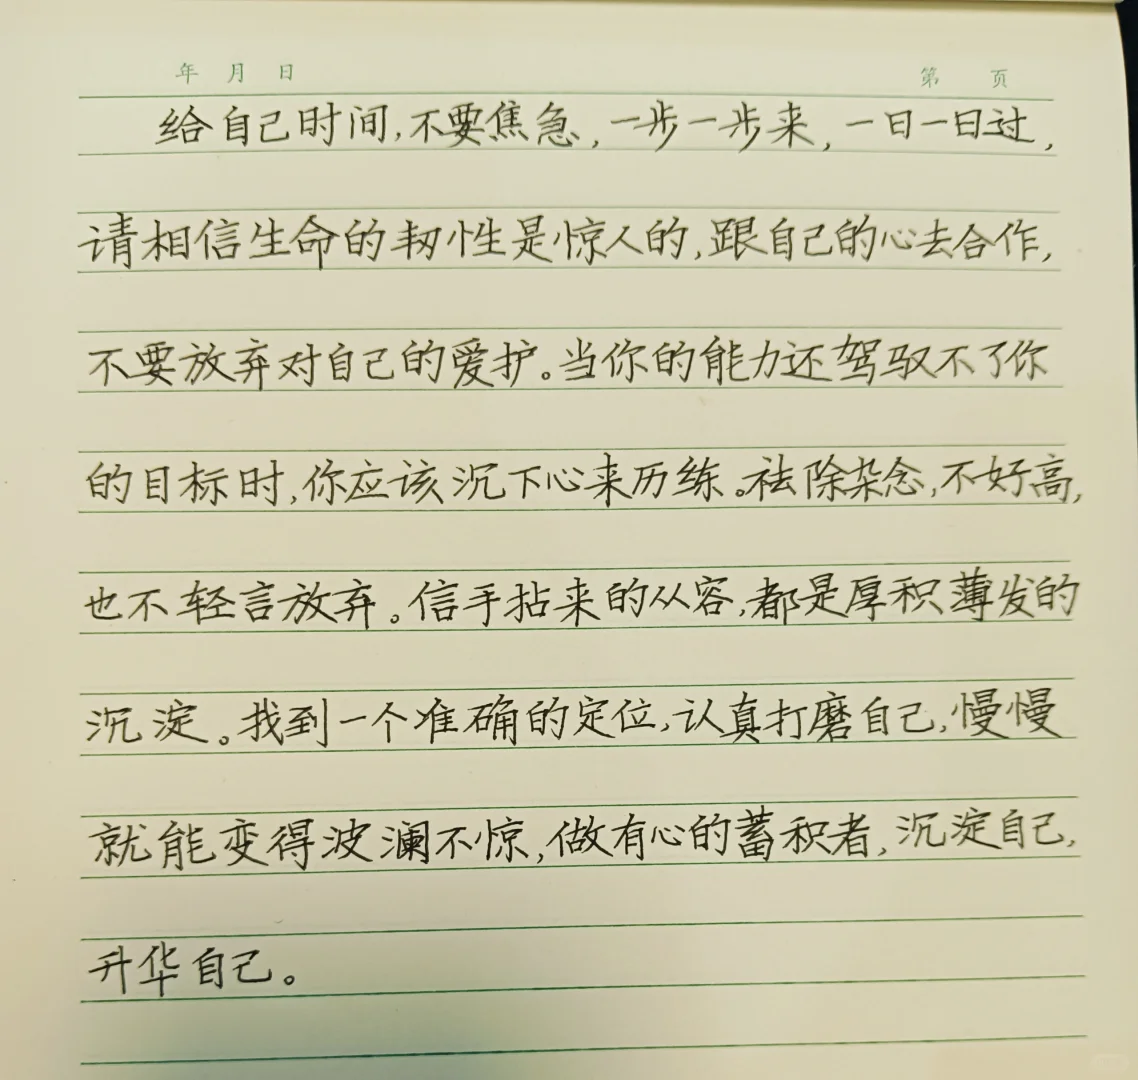 年 月 日 第 页
给自己时间,不要焦急,一步一步来,一日一日过,
请相信生命的韧性是惊人的,跟自己的心去合作,
不要放弃对自己的爱护。当你的能力还驾驭不了你
的目标时,你应该沉下心来历练。祛除杂念,不好高,
也不轻言放弃。信手拈来的从容,都是厚积薄发的
沉淀。找到一个准确的定位,认真打磨自己,慢慢
就能变得波澜不惊,做有心的蓄积者,沉淀自己,
升华自己。